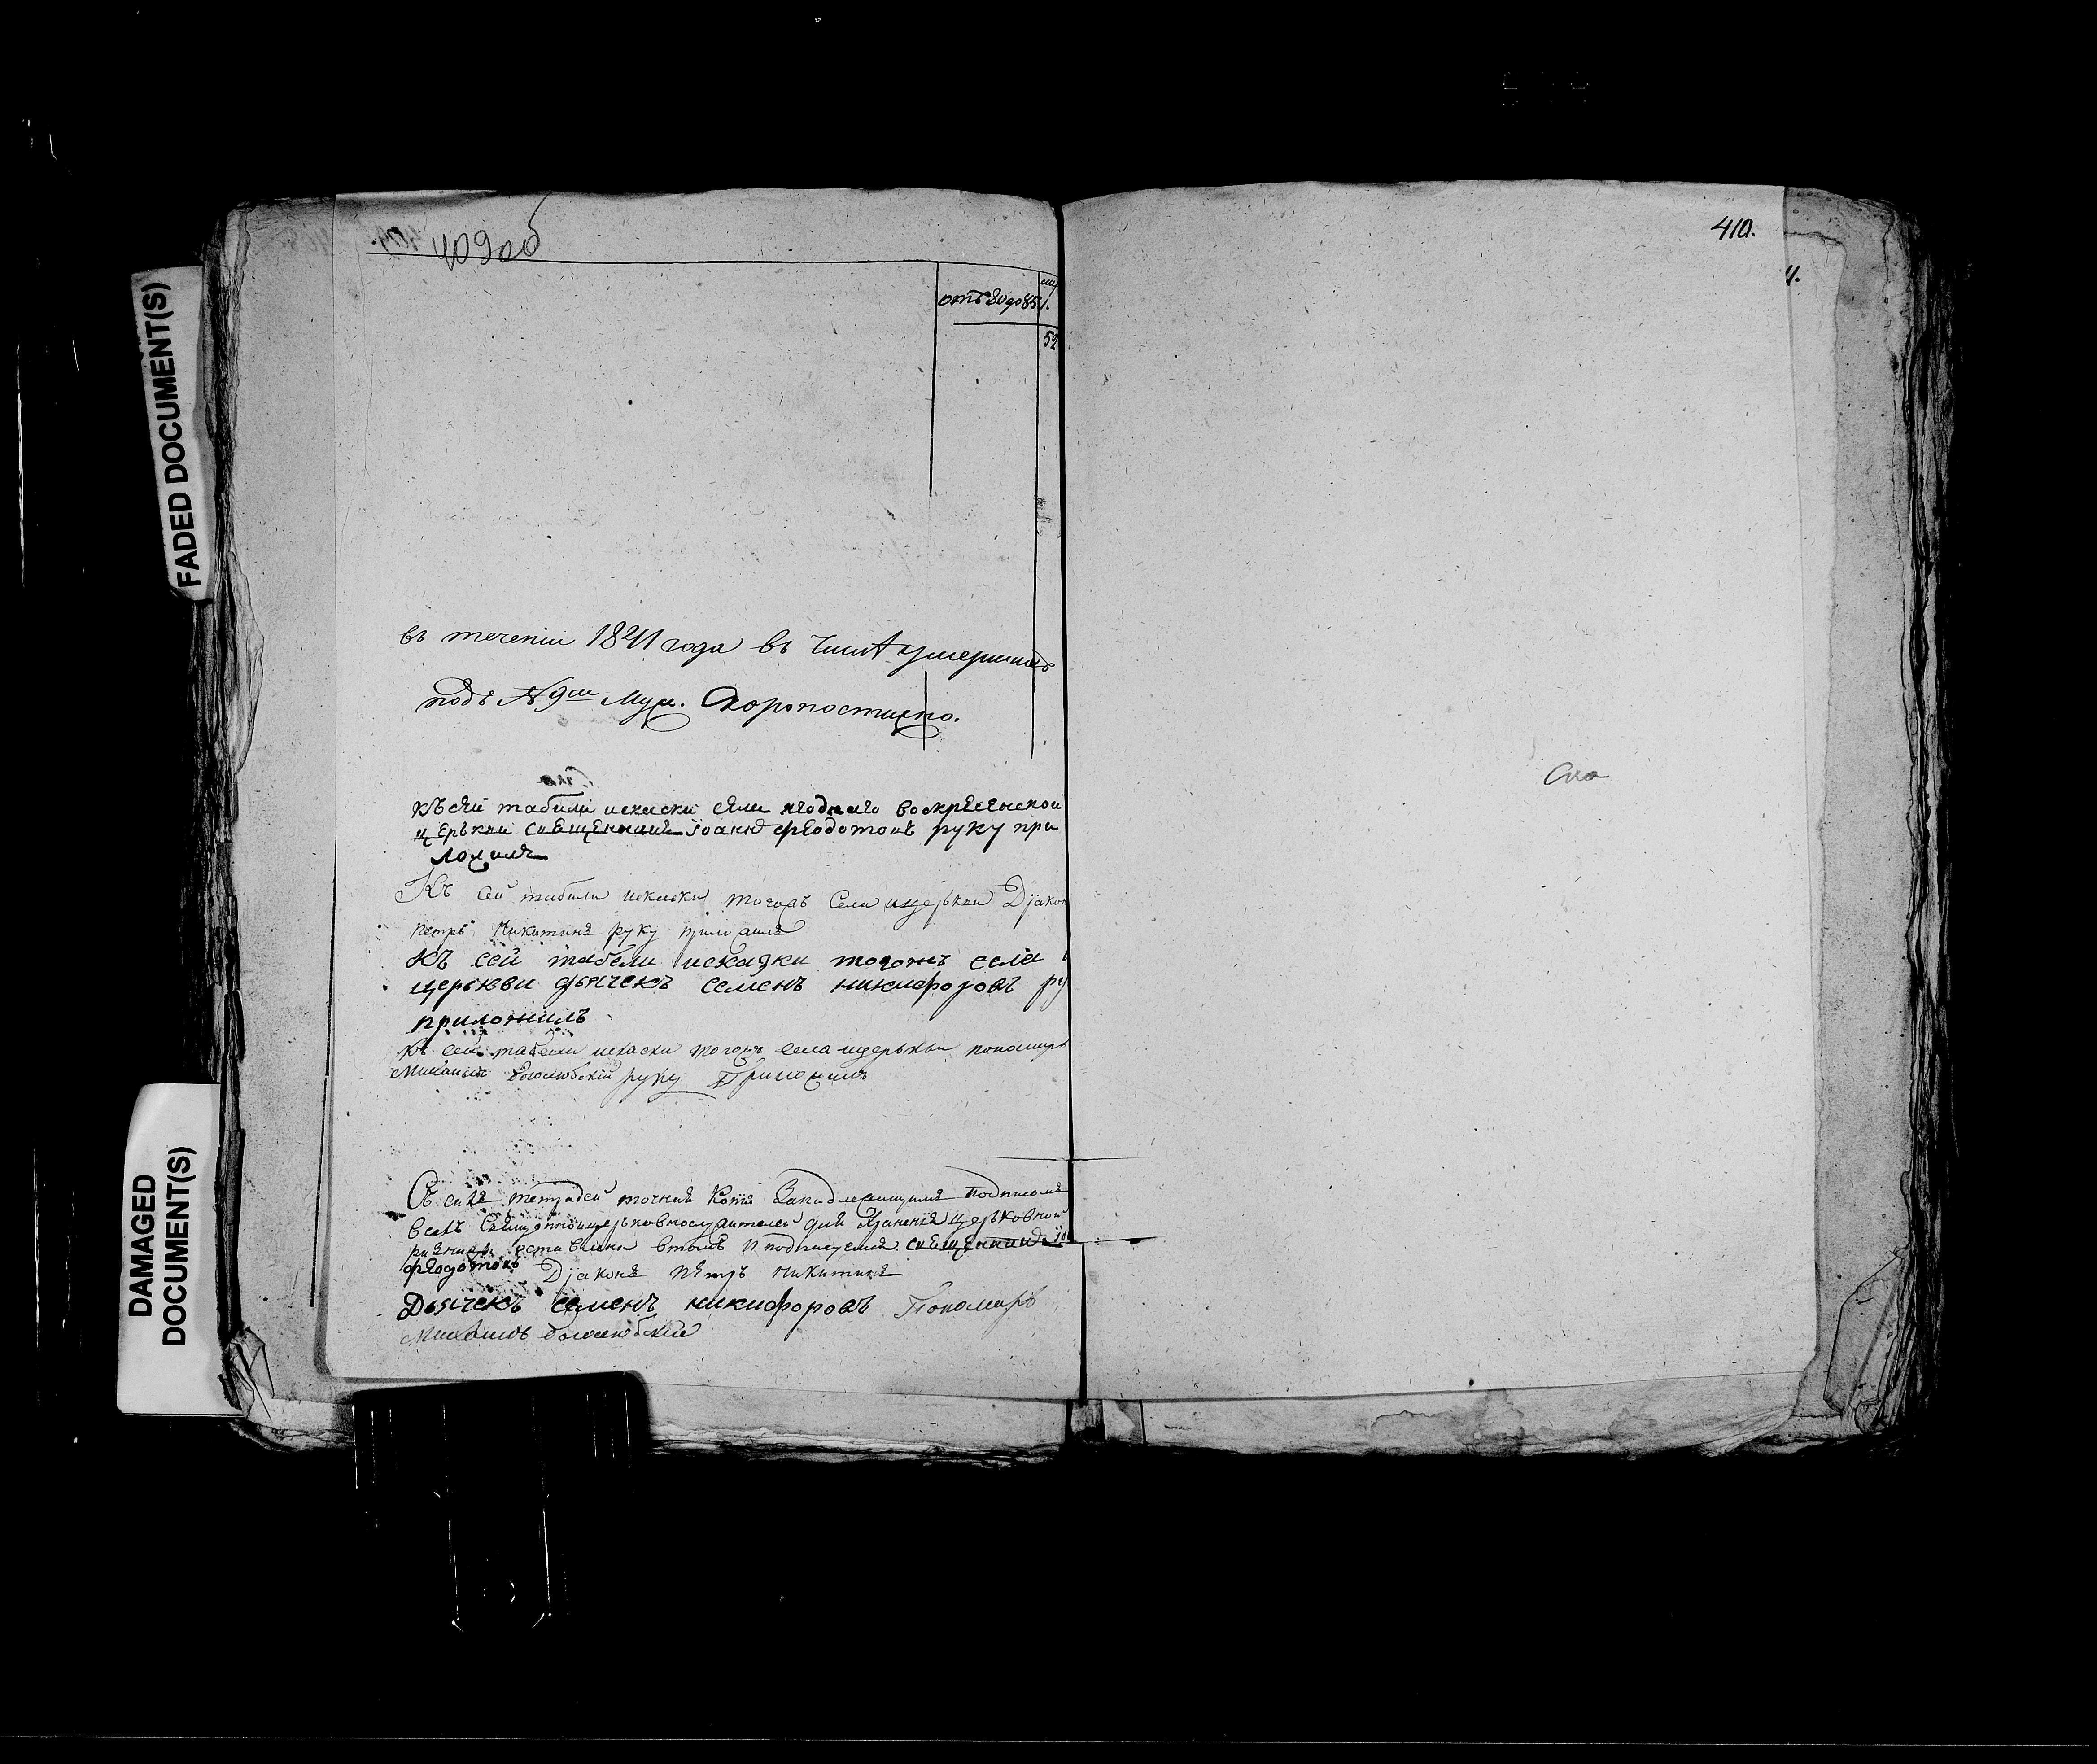 FADED DOCUMENT(S)
DAMAGED
DOCUMENT(S)
409об
410.
отъ 80 до 85
52
въ теченіи 1841 года въ числѣ умершихъ
подъ №9м муж. Скоропостижно.
къ сей табели искаски села воскресенской
церькви священникъ Іоаннъ Феодотовъ руку при
ложилъ
Къ сей табели искаски тогожъ села ицерькви Діакон
петръ Никитинъ руку приложилъ
Къ сей табели искаски тогожъ села
церькви дьячекъ семенъ никифоровъ ру
приложилъ
къ сей табели искаски тогожъ села ицерькви пономарь
Михаилъ боголюбскій руку Приложилъ
Съ сихъ тетрадей точная Копія Занадлежащимъ подписомъ
всехъ Священноицерьковнослужителей для Храненія церьковной
ризнице оставлена втомъ И подписуемся священникъ Іо
феодотовъ Діаконъ петръ Никитинъ
Дьячекъ семенъ никифоровъ Пономарь
Михаилъ боголюбскій